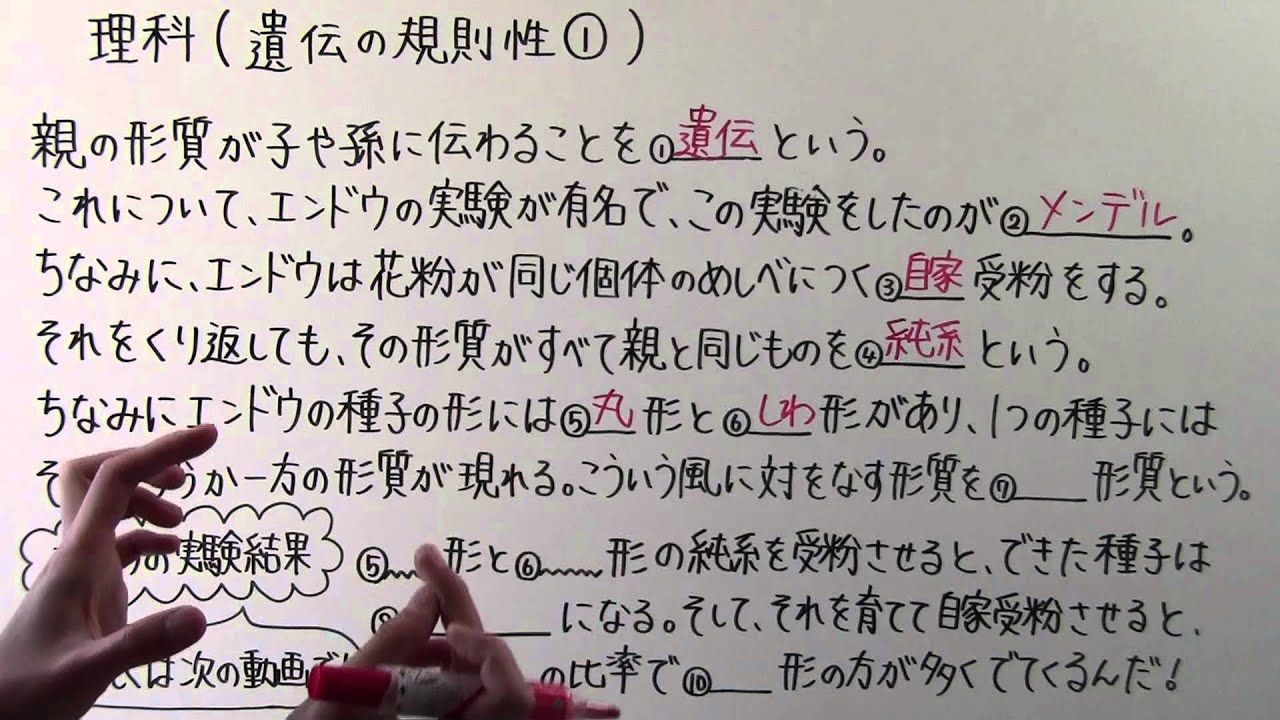 理科(遺伝の規則性①)
親の形質が子や孫に伝わることを①遺伝という。
これについて、エンドウの実験が有名で、この実験をしたのが②メンデル。
ちなみに、エンドウは花粉が同じ個体のめしべにつく③自家受粉をする。
それをくり返しても、その形質がすべて親と同じものを④純系という。
ちなみにエンドウの種子の形には⑤丸形と⑥しわ形があり、1つの種子には
そ うか一方の形質が現れる。こういう風に対をなす形質を⑦___形質という。
の実験結果
⑤___形と⑥___形の純系を受粉させると、できた種子は
⑧___になる。そして、それを育てて自家受粉させると、
は次の動画で
の比率で⑩___形の方が多くでてくるんだ!